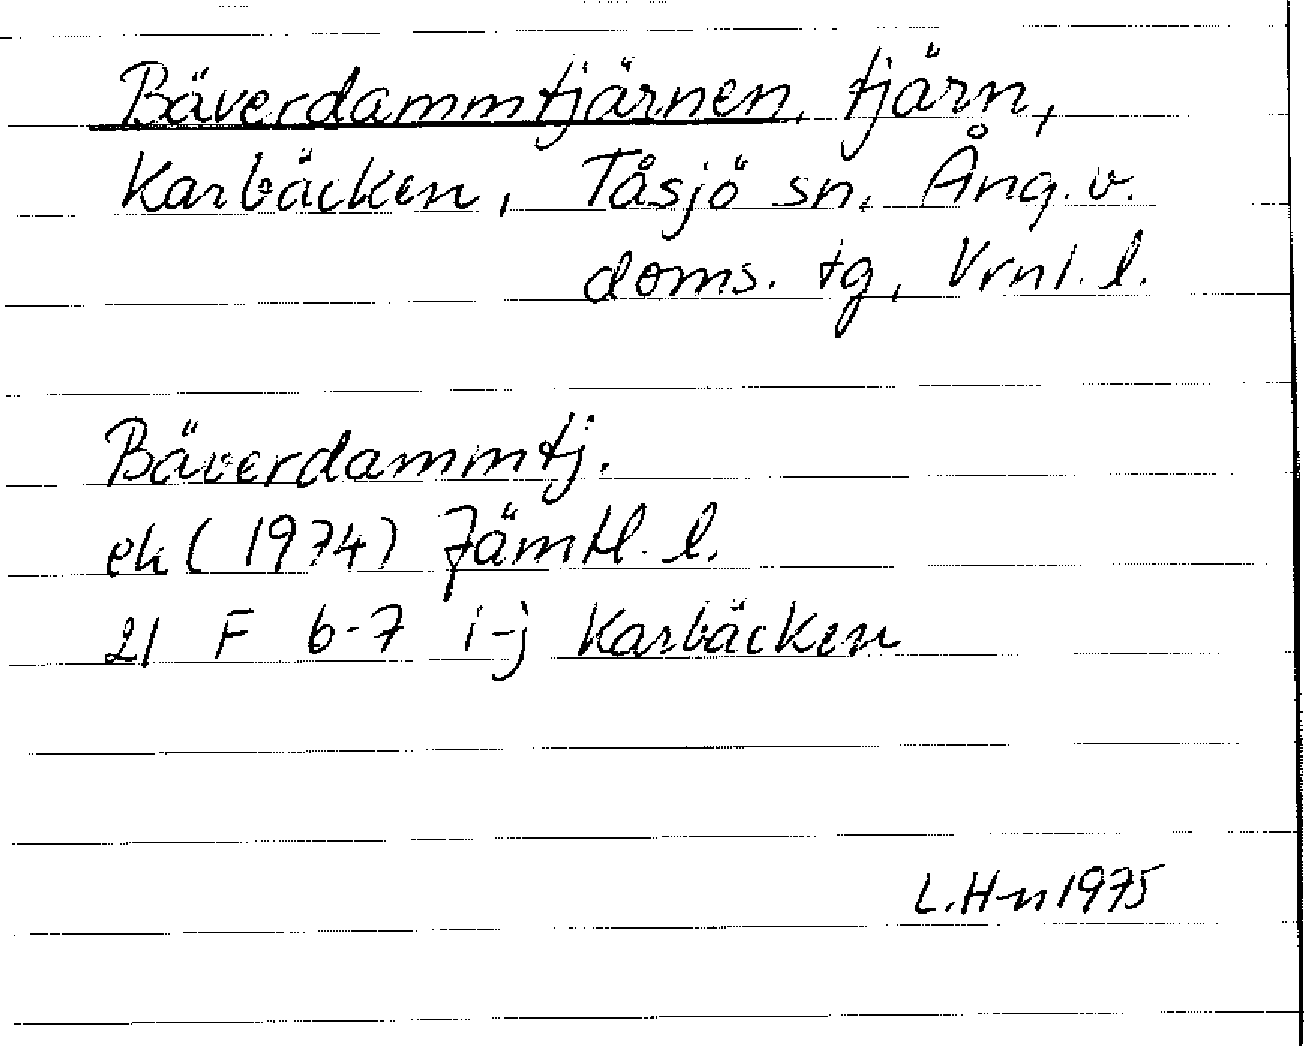 Bäverdammtjärnen, tjärn,
Karbäcken, Tåsjö sn, Ång. v.
doms. tg, Vrnl. l.
Bäverdammtj.
ek (1974) Jämtl. l.
21 F 6-7 i-j Karbäcken
L. H-n 1975